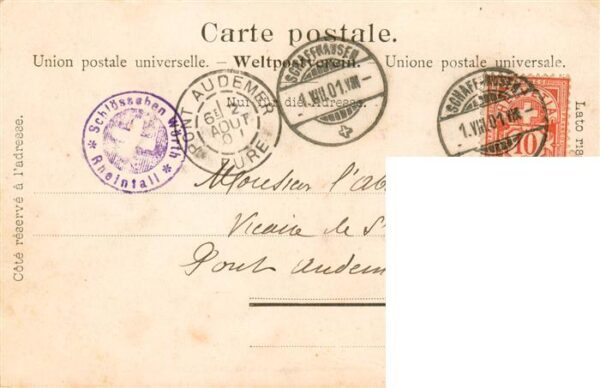 Carte postale.
Union postale universelle. – Weltpostverein. – Unione postale universale.
Nur für die Adresse.
Côté réservé à l'adresse.
Lato ris
* Schlösschen Wörth *
Rheinfall
PONT AUDEMER
6E 12
AOUT
01
EURE
SCHAFFHAUSEN
1.VIII.01.VIII–
SCHAFFHAUSEN
1.VIII.01.VIII–
10
Monsieur l'ab
Vicaire de S
Pont Audem